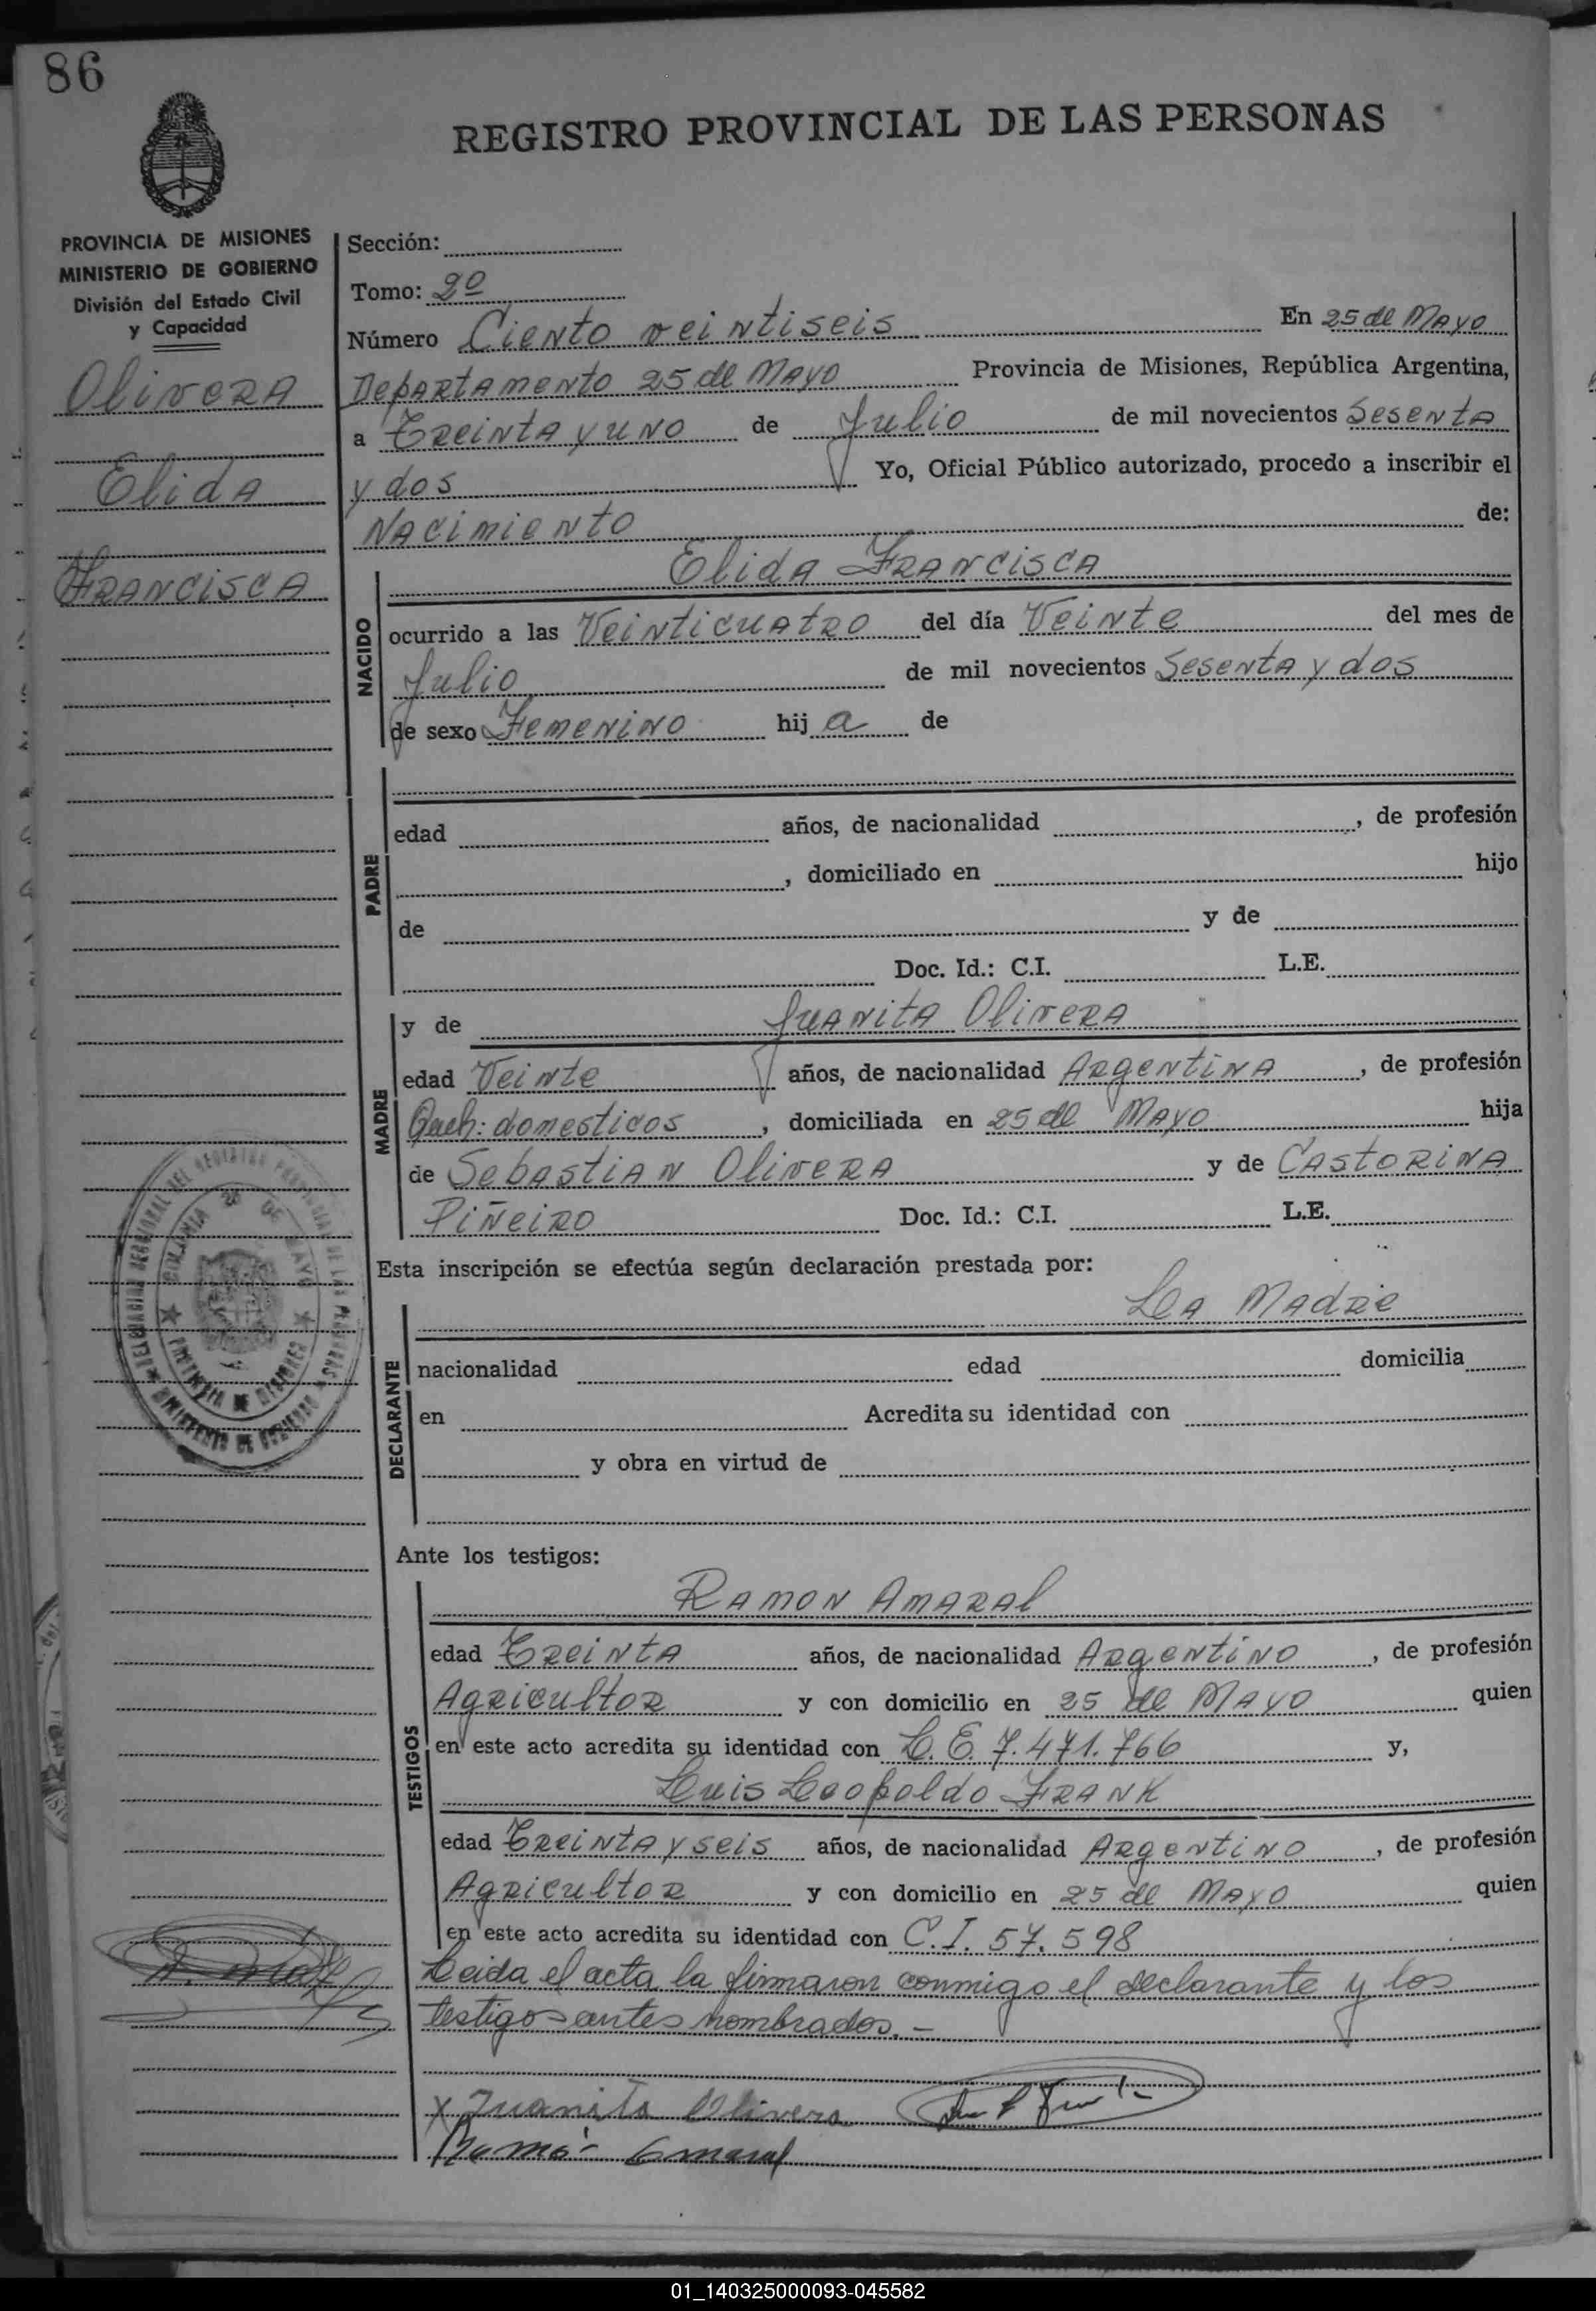 86
REGISTRO PROVINCIAL DE LAS PERSONAS
PROVINCIA DE MISIONES
MINISTERIO DE GOBIERNO
División del Estado Civil
y Capacidad
Olivera
Elida
Francisca
Sección:
Tomo: 2º
Número Ciento veintiseis En 25 de Mayo
Departamento 25 de Mayo Provincia de Misiones, República Argentina,
a Treinta y uno de Julio de mil novecientos Sesenta
y dos Yo, Oficial Público autorizado, procedo a inscribir el
Nacimiento de:
Elida Francisca
NACIDO
ocurrido a las Veinticuatro del día Veinte del mes de
Julio de mil novecientos Sesenta y dos
de sexo Femenino hij a de
PADRE
edad años, de nacionalidad , de profesión
, domiciliado en hijo
de y de
Doc. Id.: C.I. L.E.
MADRE
y de Juanita Olivera
edad Veinte años, de nacionalidad Argentina , de profesión
Queh: domesticos , domiciliada en 25 de Mayo hija
de Sebastian Olivera y de Castorina
Piñeiro Doc. Id.: C.I. L.E.
Esta inscripción se efectúa según declaración prestada por:
La Madre
DECLARANTE
nacionalidad edad domicilia
en Acredita su identidad con
y obra en virtud de
Ante los testigos:
TESTIGOS
Ramon Amaral
edad Treinta años, de nacionalidad Argentino , de profesión
Agricultor y con domicilio en 25 de Mayo quien
en este acto acredita su identidad con L.E. 7.471.766 y,
Luis Leopoldo Frank
edad Treinta y seis años, de nacionalidad Argentino , de profesión
Agricultor y con domicilio en 25 de Mayo quien
en este acto acredita su identidad con C.I. 57.598
Leida el acta la firmaron conmigo el declarante y los
testigos antes nombrados.-
x Juanita Olivera
Ramón Amaral
01_140325000093-045582